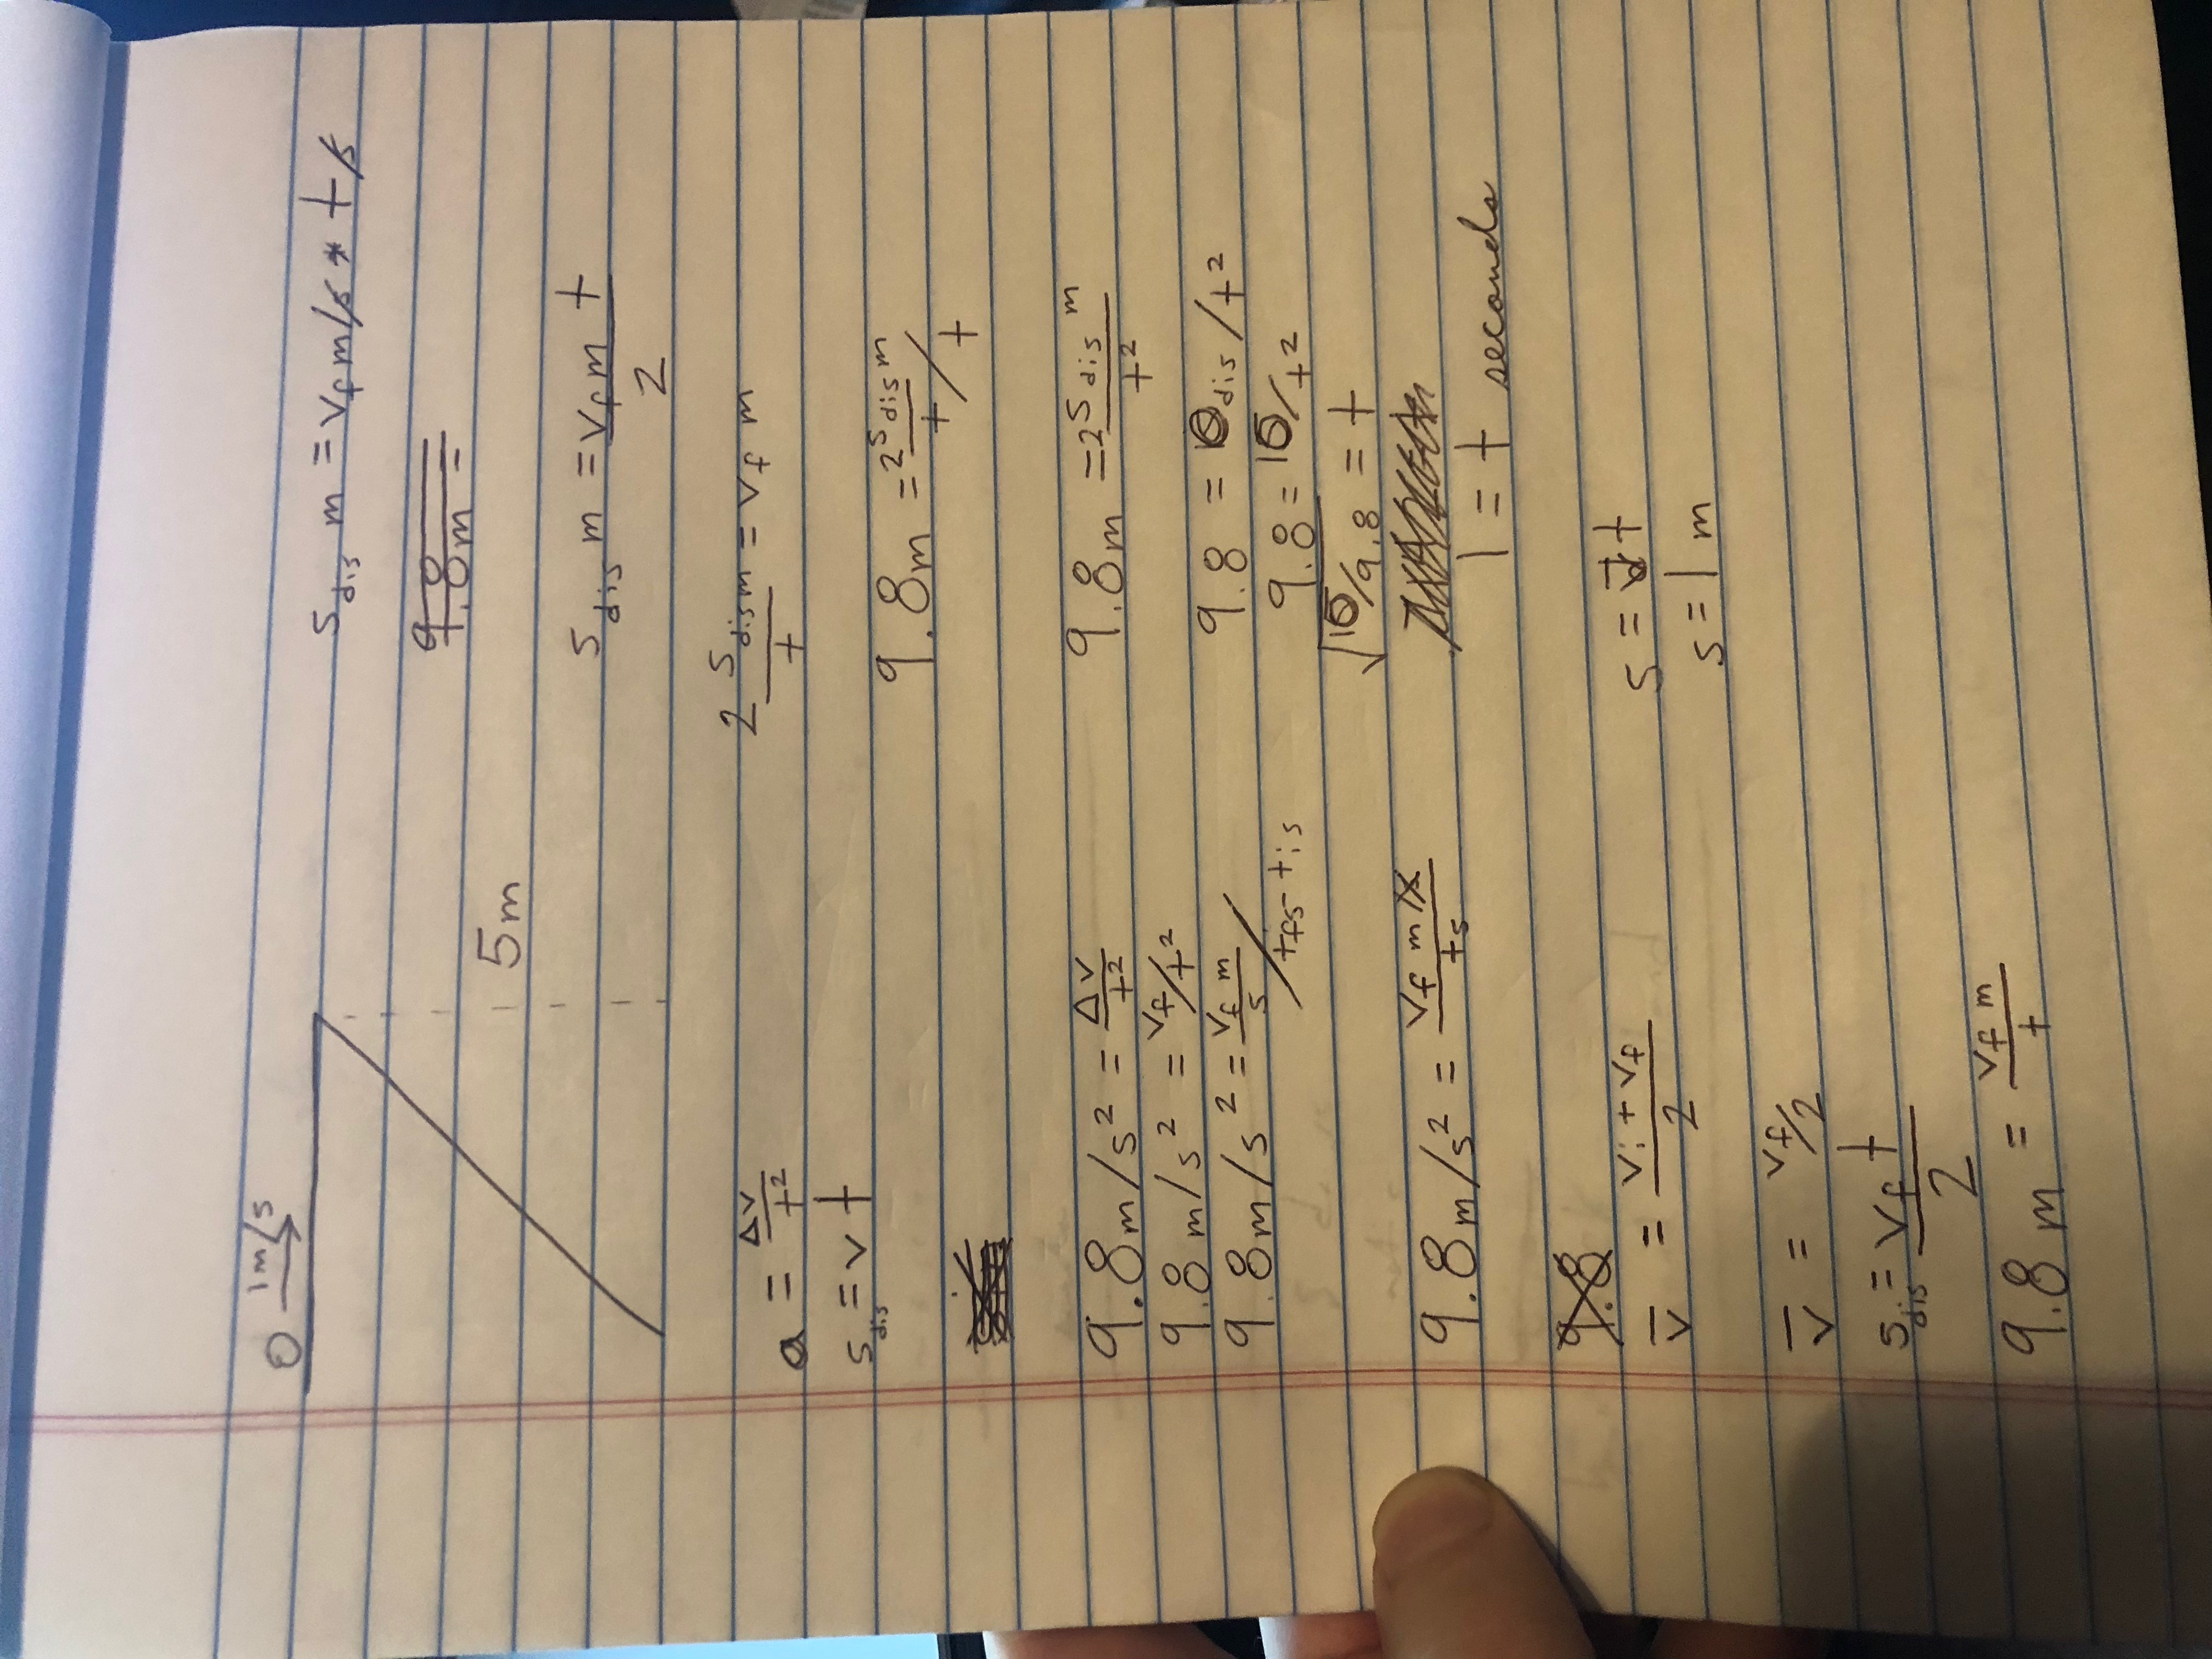 O 1m/s
5m
a = Δv/t²
s_dis = v t
9.8m/s² = Δv/t²
9.8m/s² = v_f/t²
9.8m/s² = (v_f m/s)/(t_f s - t_i s)
9.8m/s² = (v_f m/s)/(t s)
9.8
v̄ = (v_i + v_f)/2
v̄ = v_f/2
s_dis = (v_f t)/2
9.8 m = (v_f m)/t
s_dis m = v_f m/s * t/s
9.8m =
s_dis m = (v_f m t)/2
2 (s_dis m)/t = v_f m
9.8m = (2 s_dis m)/t / t
9.8m = (2 s_dis m)/t²
9.8 = 10 dis/t²
9.8 = 10/t²
√10/9.8 = t
1 = t seconds
s = v̄t
s = 1 m